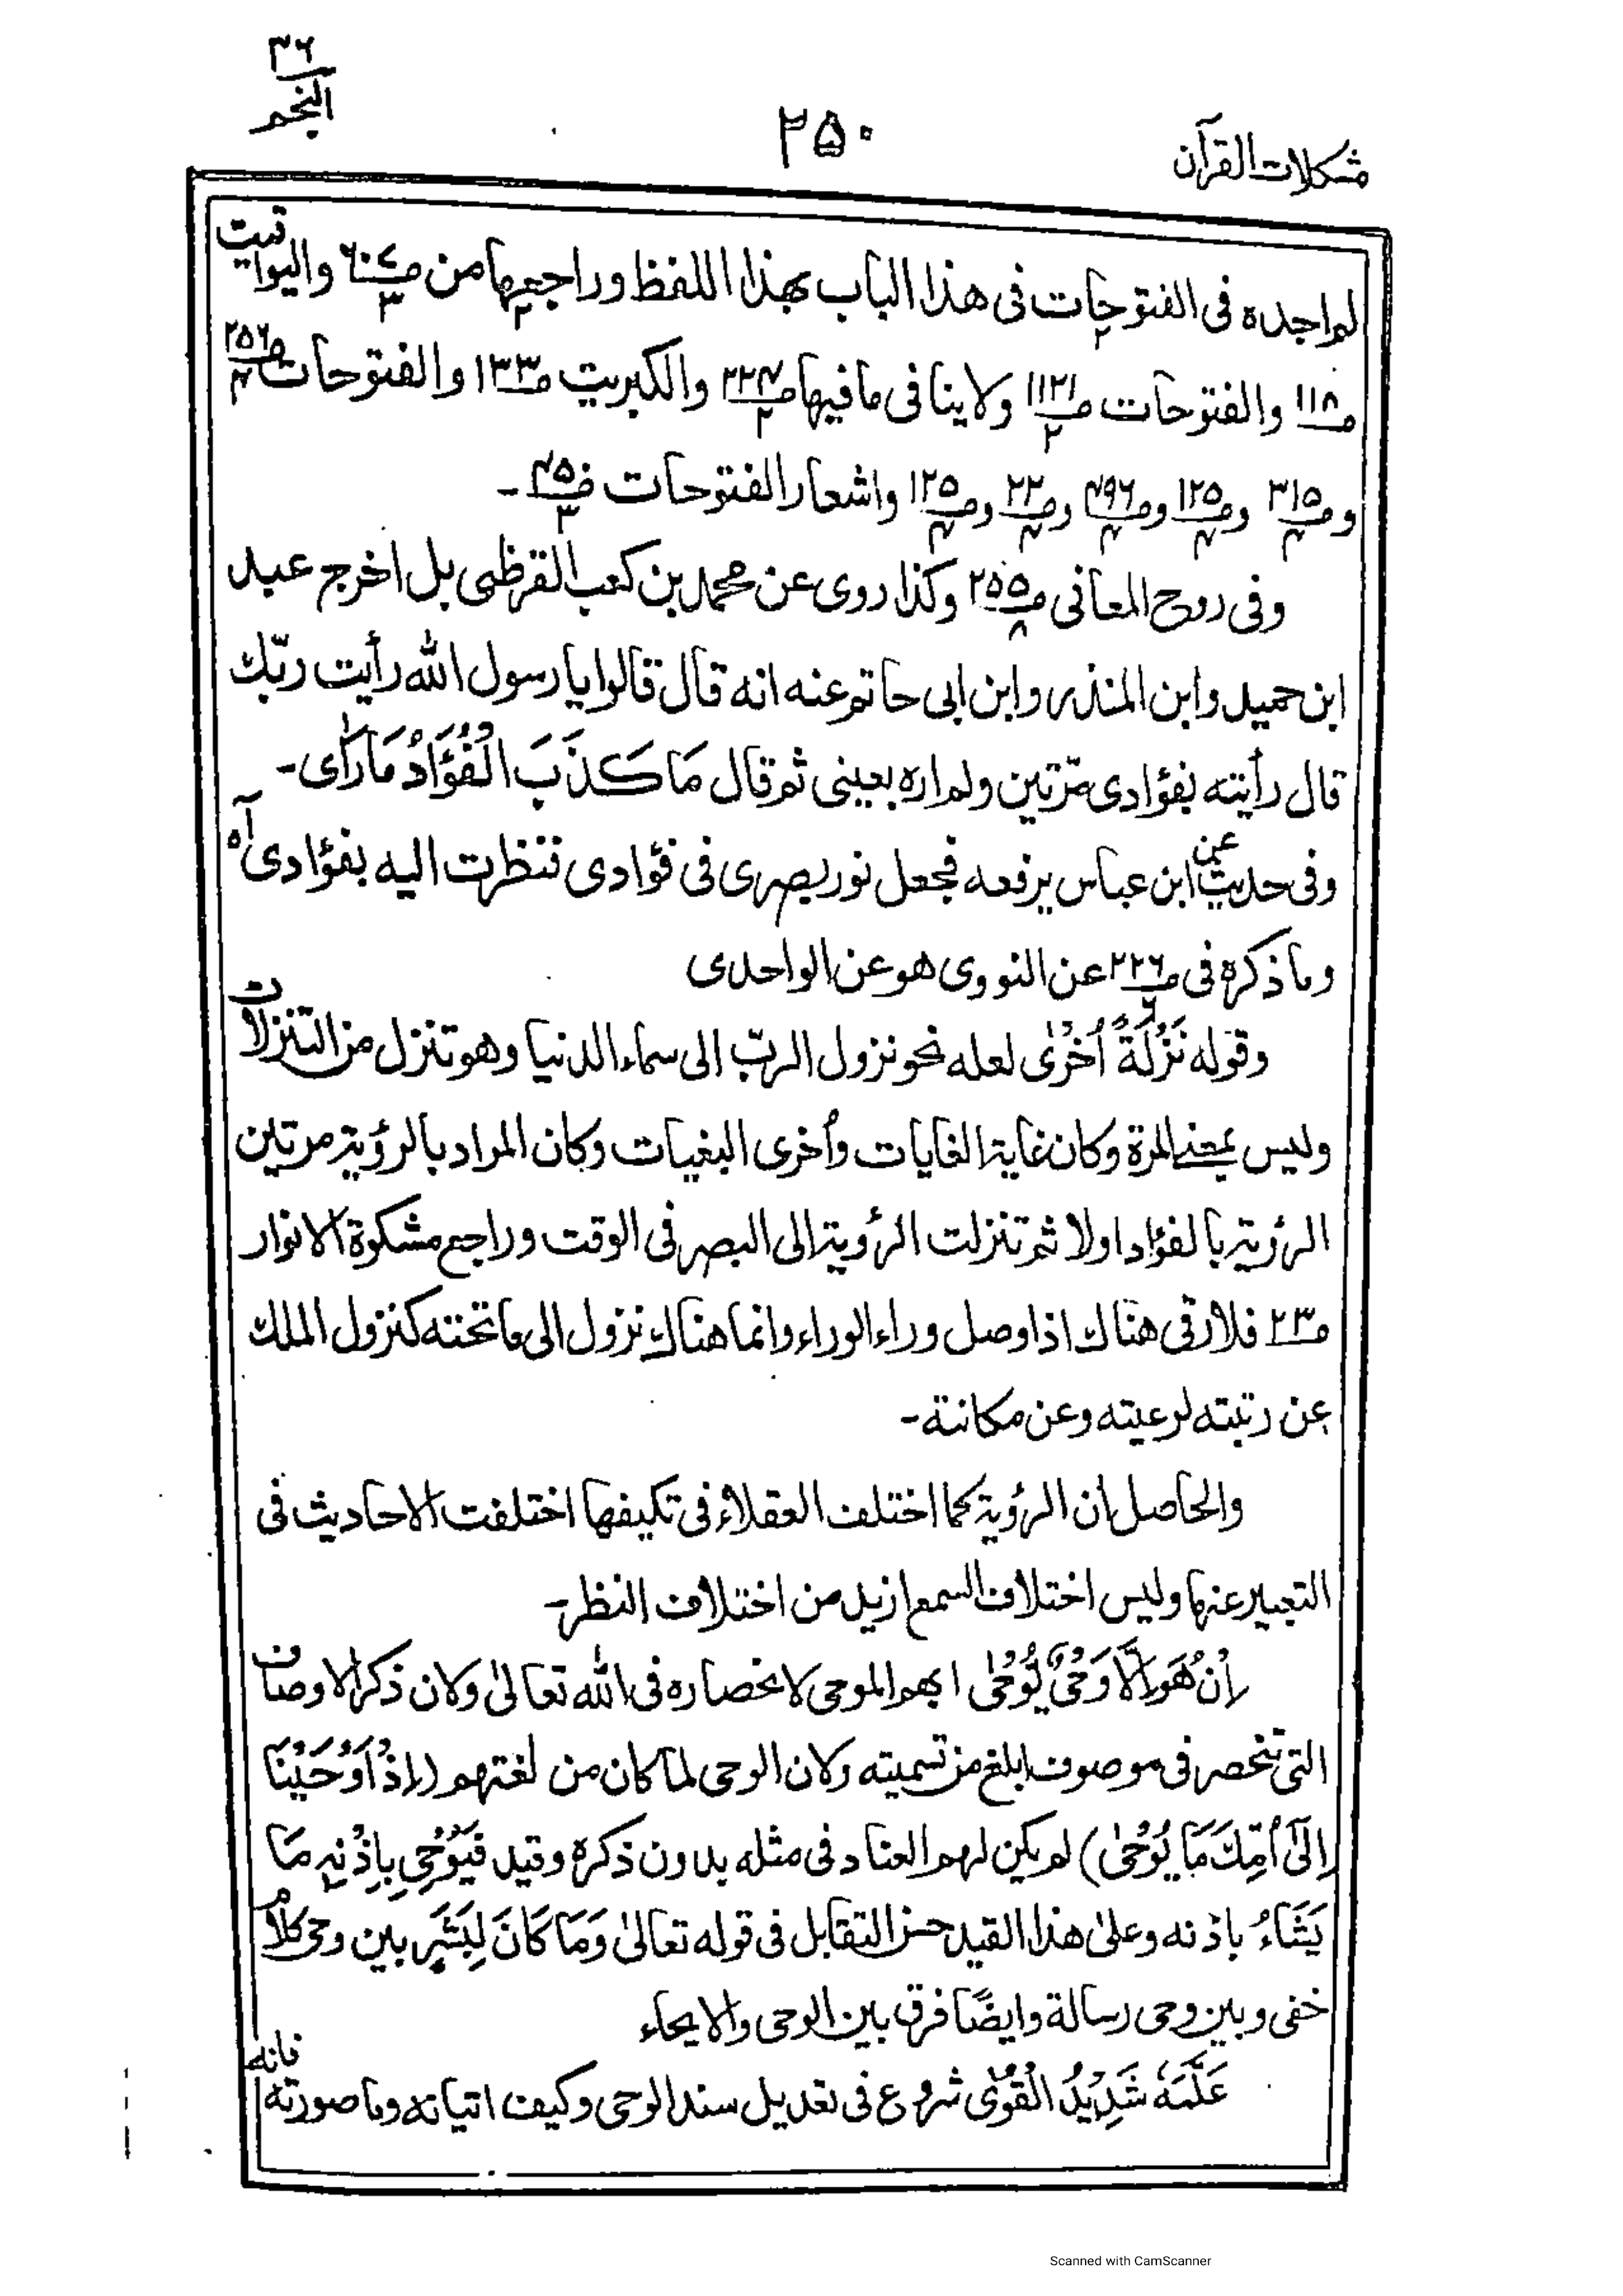 ٣٦
النجم
٢٥٠
مشكلات القرآن
لم اجده فى الفتوحات فى هذا الباب بهذا اللفظ وراجعها من واليواقيت
ص١١٨ والفتوحات ص١١٣١/٢ ولا ينافى ما فيها ص٢٢٤/٢ والكبريت ص١٣٣ والفتوحات ص٢٥٦/٤
وص٣١٥/٤ وص١٢٥/٤ وص٤٩٦/٤ وص٢٢/٤ وص١٢٥/٤ واشعار الفتوحات ص٤٥/٣ -
وفى روح المعانى ص٢٥٥/٨ وكذا روى عن محمد بن كعب القرظى بل اخرج عبد
ابن حميد وابن المنذر وابن ابى حاتم عنه انه قال قالوا يا رسول الله رأيت ربّك
قال رأيته بفؤادى مرّتين ولم اره بعينى ثم قال مَا كَذَبَ الْفُؤَادُ مَا رَاٰى -
وفى حديث عن ابن عباس يرفعه فجعل نور بصرى فى فؤادى فنظرت اليه بفؤادى آه
وما ذكره فى ص٢٢٦ عن النووى هو عن الواحدى
وقوله نَزْلَةً اُخْرٰى لعله نحو نزول الربّ الى سماء الدنيا وهو تنزل من التنزلات
وليس بمعنى المرة وكان غاية الغايات وأخرى البغيات وكان المراد بالرؤية مرتين
الرؤية بالفؤاد اولا ثم تنزلت الرؤية الى البصر فى الوقت وراجع مشكوة الانوار
ص٢٣ فلا رقى هناك اذا وصل وراء الوراء وانما هناك نزول الى ما تحته كنزول الملك
عن رتبته لرعيته وعن مكانته -
والحاصل ان الرؤية كما اختلف العقلاء فى تكيفها اختلفت الاحاديث فى
التعبير عنها وليس اختلاف السمع ازيد من اختلاف النظر -
اِنْ هُوَ اِلَّا وَحْىٌ يُّوْحٰى ابهم الموحى لانحصاره فى الله تعالىٰ ولان ذكر الاوصاف
التى تنحصر فى موصوف ابلغ من تسميته ولان الوحى لما كان من لغتهم (اِذْ اَوْحَيْنَا
اِلٰٓى اُمِّكَ مَا يُوْحٰى) لم يكن لهم العناد فى مثله بدون ذكره وقيد فَيُوْحِىَ بِاِذْنِهٖ مَا
يَشَاءُ باذنه وعلىٰ هذا القيد حسن التقابل فى قوله تعالىٰ وَمَا كَانَ لِبَشَرٍ بين وحى كلام
خفى وبين وحى رسالة وايضًا فرق بين الوحى والايحاء
عَلَّمَهٗ شَدِيْدُ الْقُوٰى شروع فى تعديل سند الوحى وكيف اتيانه وما صورته فانه
Scanned with CamScanner